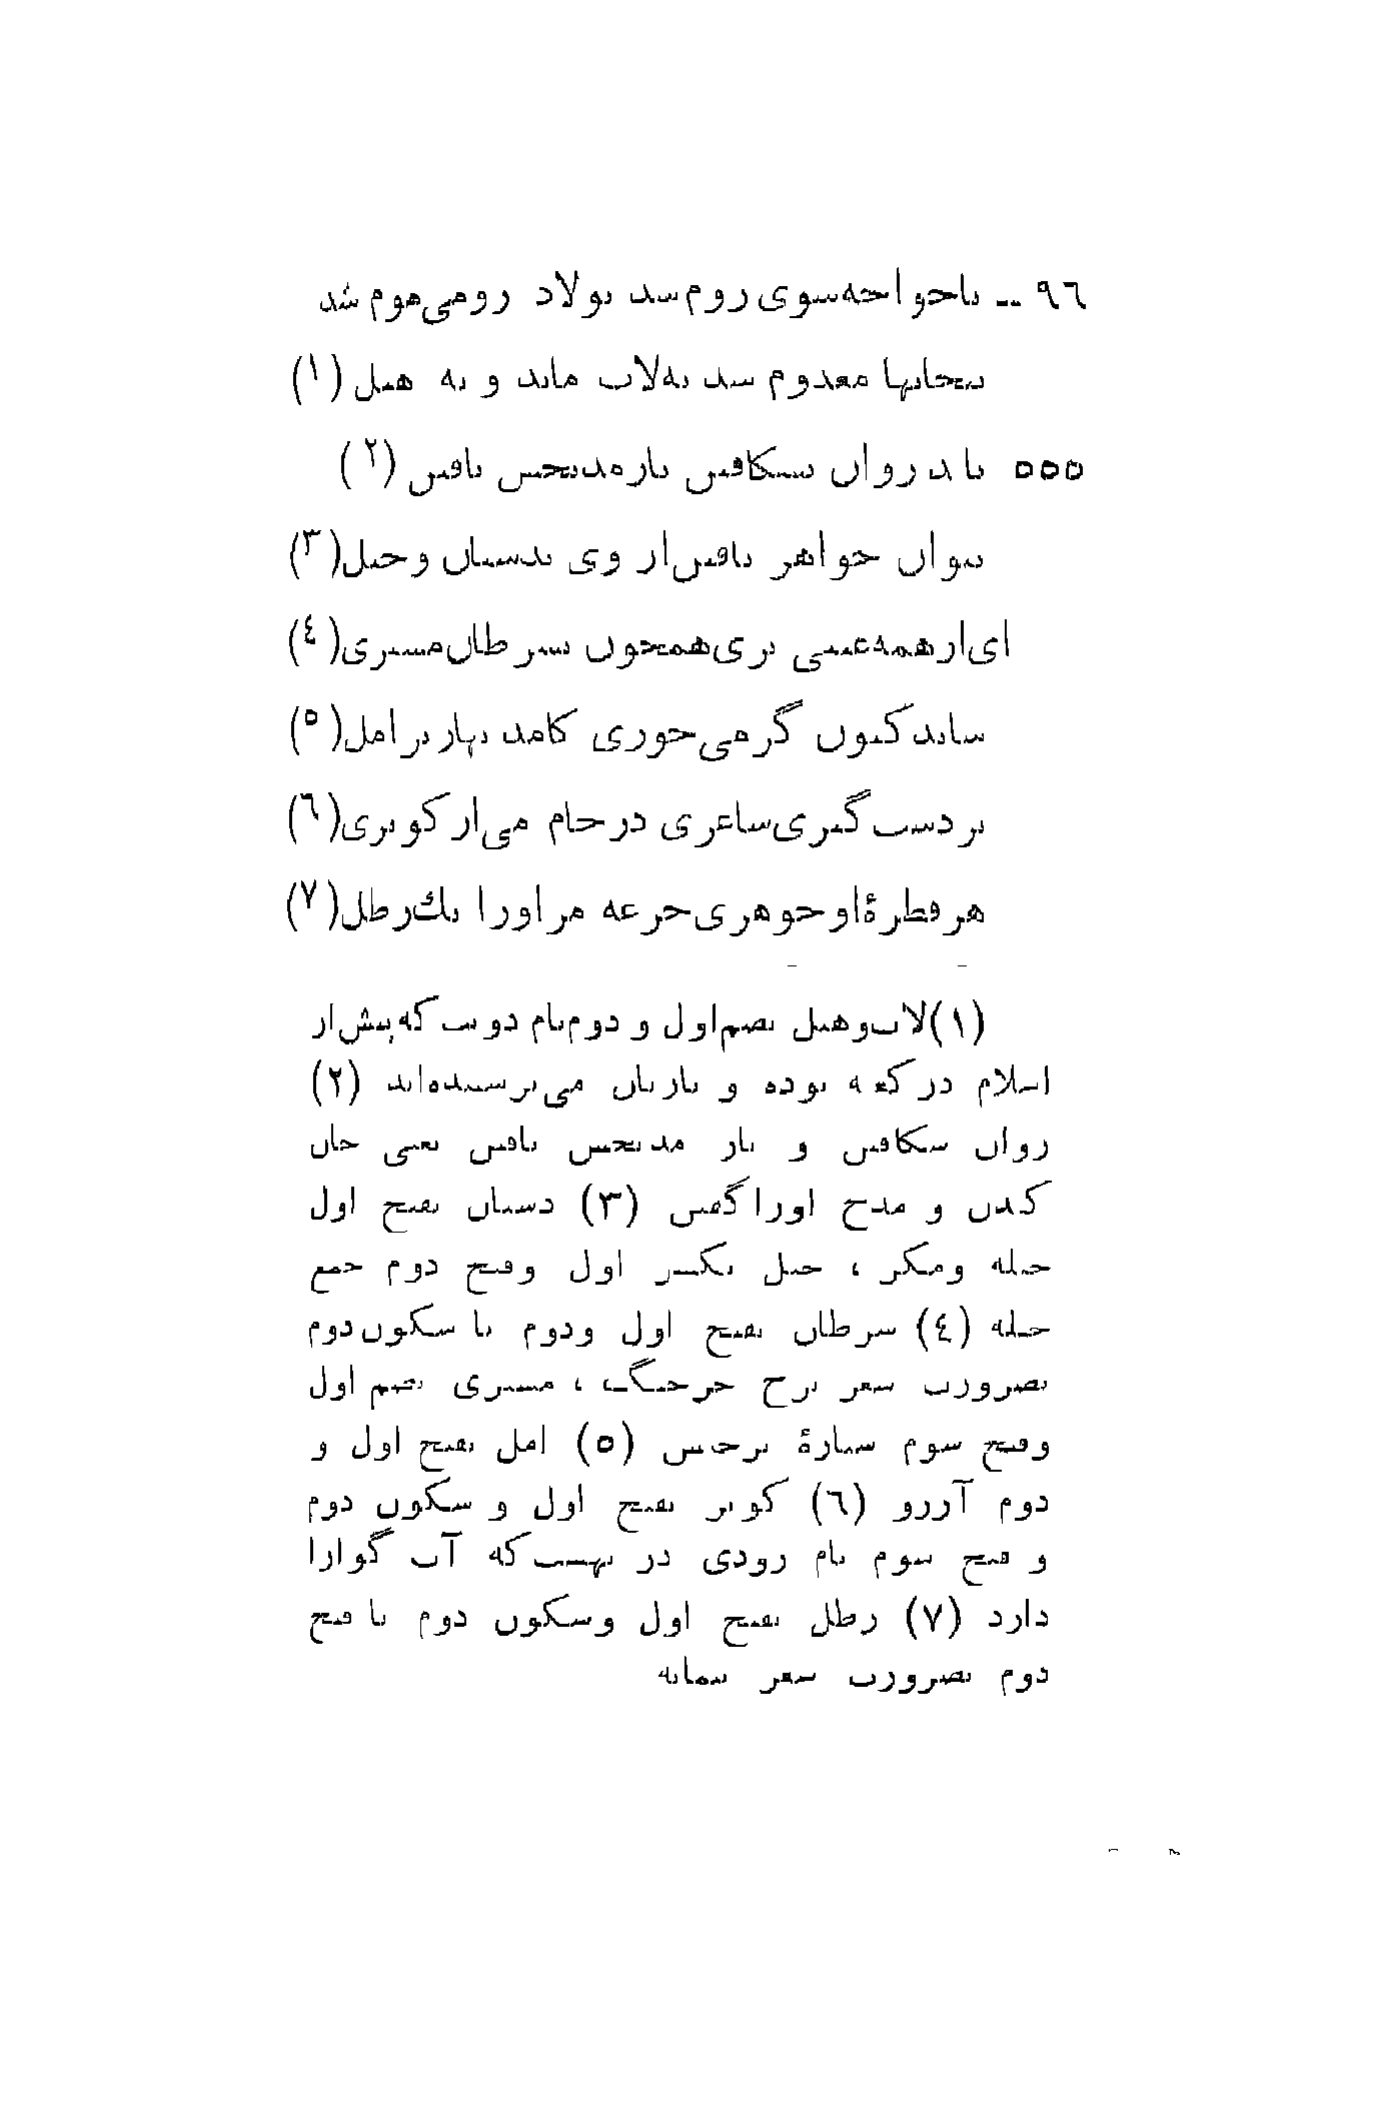 ٩٦ ــ تا خواجه سوی روم شد پولاد رومی موم شد
بتخانها معدوم شد نه لات ماند و نه هبل (١)
٥٥٥ تا بد روان بشکافتن باره مدیحش بافتن (٢)
نتوان جواهر یافتن از وی بدستان و حیل (٣)
ای از همه عیبی بری همچون بسرطان مشتری (٤)
شاید کنون گر می خوری کامد بهار بر امل (٥)
بر دست گیری ساغری در جام می از کوثری (٦)
هر قطرهٔ او جوهری جرعه مر او را یك رطل (٧)
(١) لات و هبل بضم اول و دوم نام دو بت که پیش از
اسلام در کعبه بوده و تازیان می پرستیده اند (٢)
روان شکافتن و تار مدیحش بافتن یعنی جان
کندن و مدح او را گفتن (٣) دستان بفتح اول
حیله و مکر ، حیل بکسر اول و فتح دوم جمع
حیله (٤) سرطان بفتح اول و دوم با سکون دوم
بضرورت شعر برج خرچنگ ، مشتری بضم اول
و فتح سوم ستارهٔ برجیس (٥) امل بفتح اول و
دوم آرزو (٦) کوثر بفتح اول و سکون دوم
و فتح سوم نام رودی در بهشت که آب گوارا
دارد (٧) رطل بفتح اول و سکون دوم با فتح
دوم بضرورت شعر پیمانه